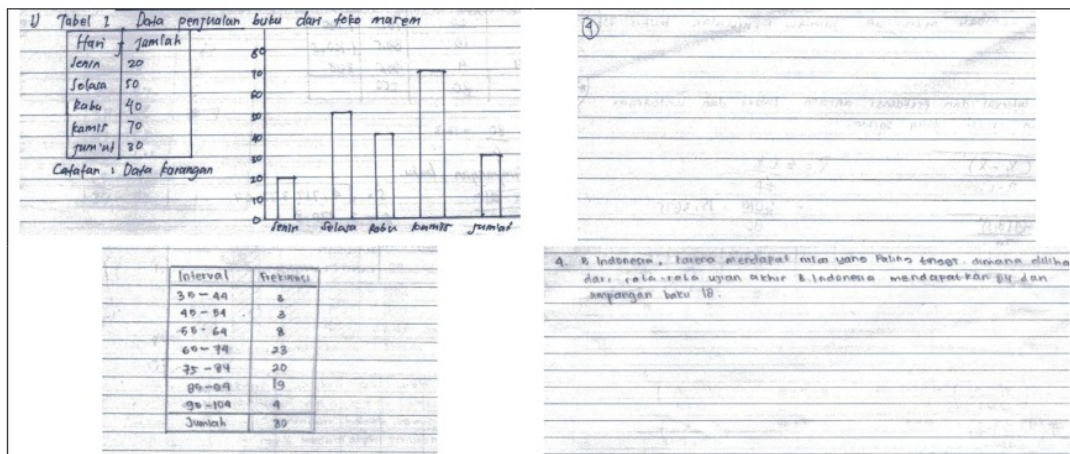 1) Tabel 1 Data penjualan buku dari toko marem
Hari Jumlah
Senin 20
Selasa 50
Rabu 40
Kamis 70
Jum'at 30
Catatan : Data karangan
80
70
60
50
40
30
20
10
0
Senin Selasa Rabu kammis jum'at
Interval Frekuensi
35 - 44 3
45 - 54 3
55 - 64 8
65 - 74 23
75 - 84 20
85 - 94 19
95 - 104 4
Jumlah 80
4
4. B Indonesia, karena mendapat nilai yang Paling tinggi. dimana dilihat
dari rata-rata ujian akhir B.Indonesia mendapatkan 84 dan
simpangan baku 18.